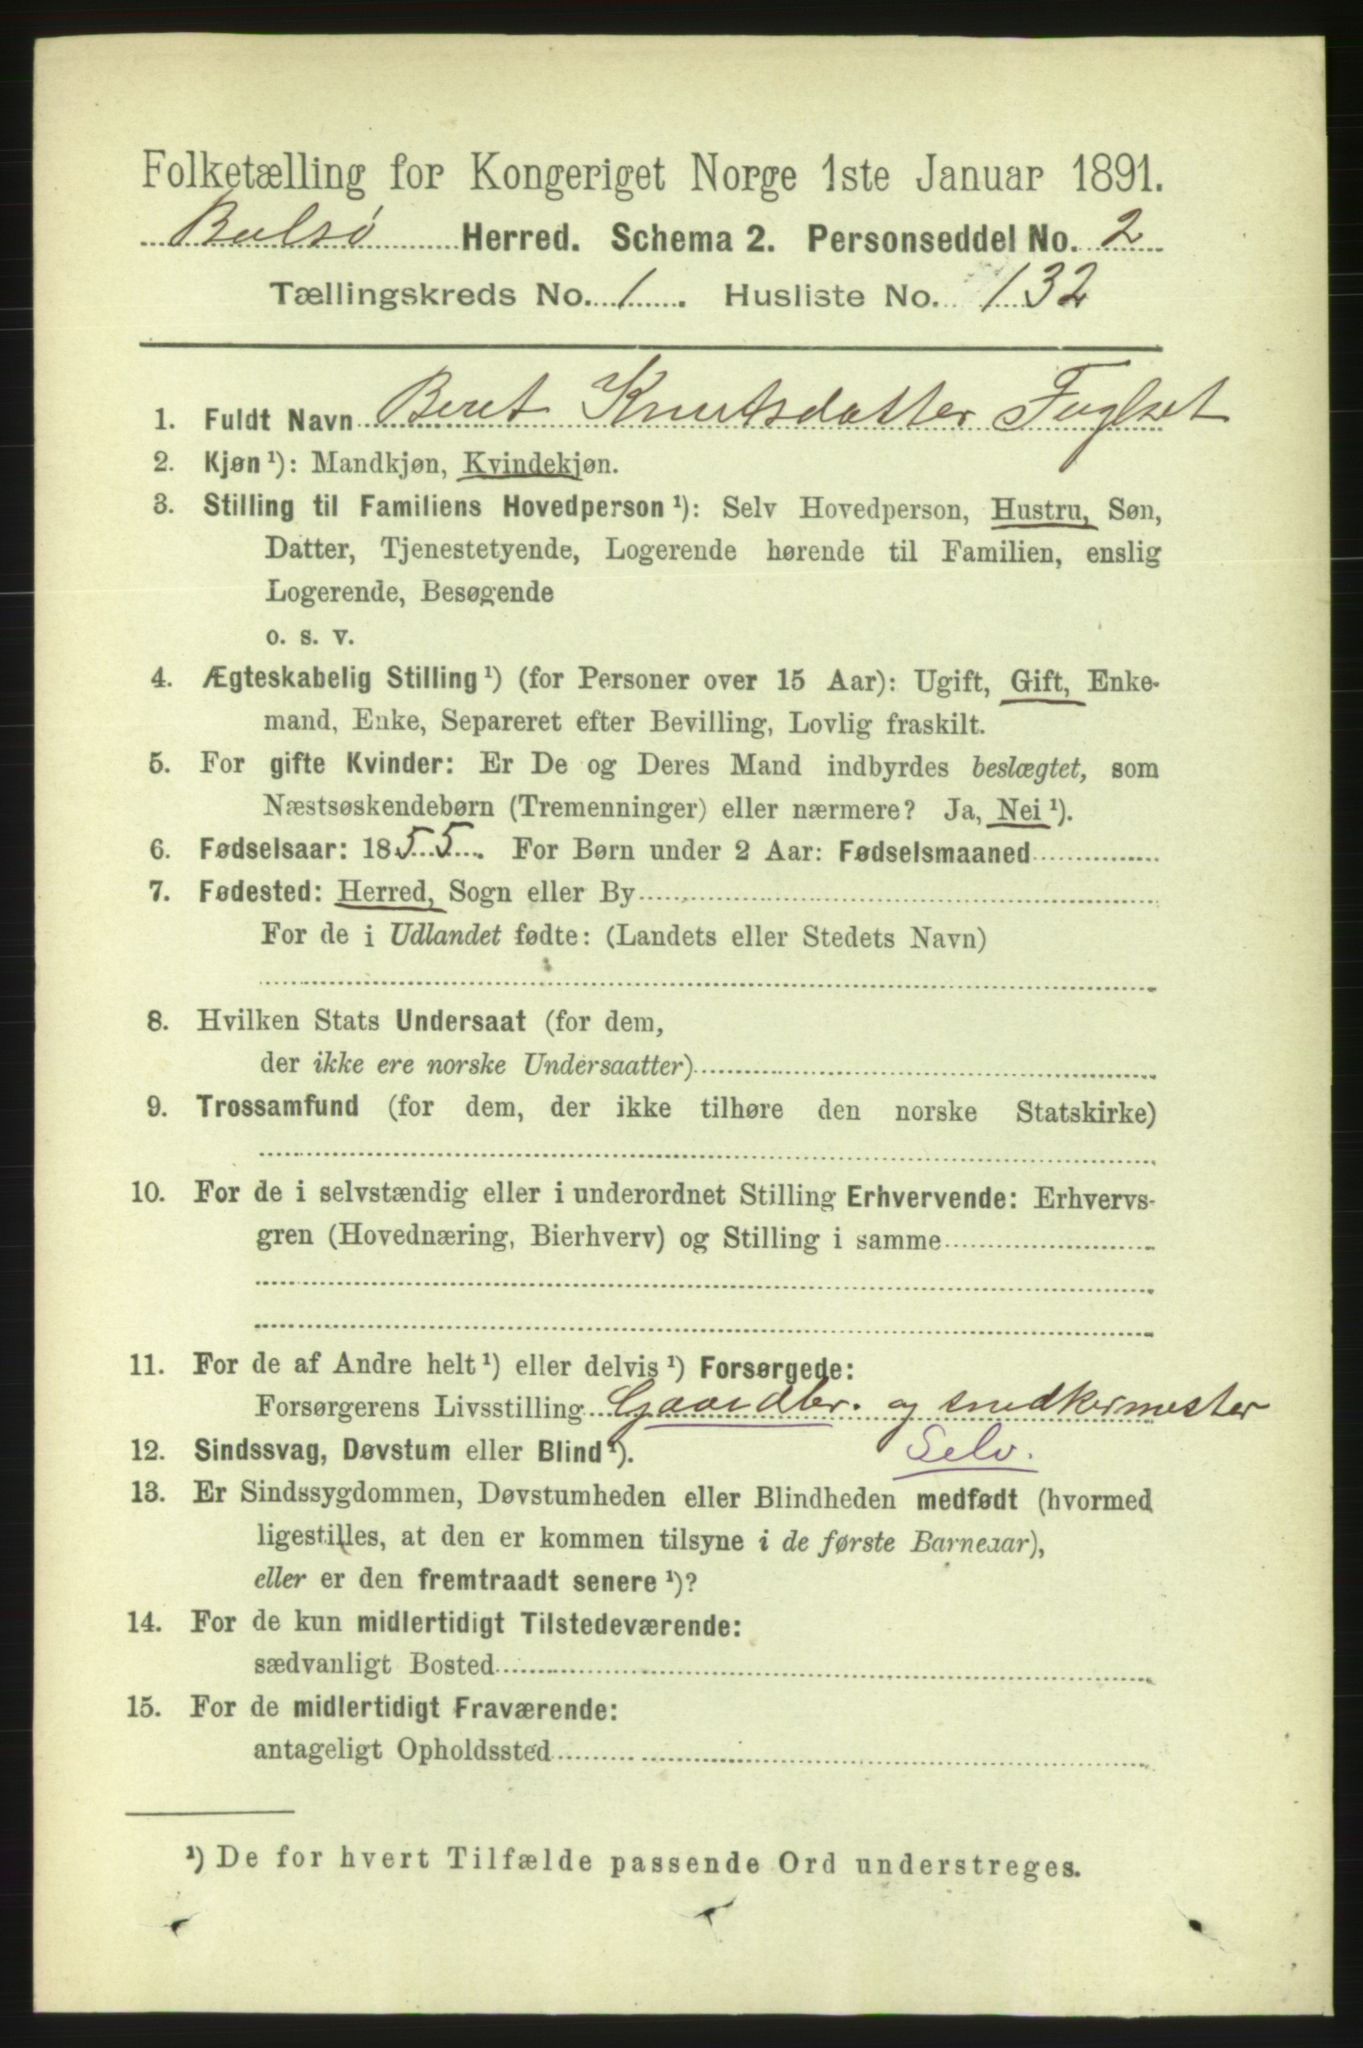 Folketælling for Kongeriget Norge 1ste Januar 1891.
Bolsø Herred. Schema 2. Personseddel No. 2
Tællingskreds No. 1. Husliste No. 132
1. Fuldt Navn Beret Knutsdatter Fuglset
2. Kjøn ¹): Mandkjøn, Kvindekjøn.
3. Stilling til Familiens Hovedperson ¹): Selv Hovedperson, Hustru, Søn,
Datter, Tjenestetyende, Logerende hørende til Familien, enslig
Logerende, Besøgende
o. s. v.
4. Ægteskabelig Stilling ¹) (for Personer over 15 Aar): Ugift, Gift, Enke-
mand, Enke, Separeret efter Bevilling, Lovlig fraskilt.
5. For gifte Kvinder: Er De og Deres Mand indbyrdes beslægtet, som
Næstsøskendebørn (Tremenninger) eller nærmere? Ja, Nei ¹).
6. Fødselsaar: 1855. For Børn under 2 Aar: Fødselsmaaned
7. Fødested: Herred, Sogn eller By
For de i Udlandet fødte: (Landets eller Stedets Navn)
8. Hvilken Stats Undersaat (for dem,
der ikke ere norske Undersaatter)
9. Trossamfund (for dem, der ikke tilhøre den norske Statskirke)
10. For de i selvstændig eller i underordnet Stilling Erhvervende: Erhvervs-
gren (Hovednæring, Bierhverv) og Stilling i samme
11. For de af Andre helt ¹) eller delvis ¹) Forsørgede:
Forsørgerens Livsstilling Gaardbr. og snedkermester
12. Sindssvag, Døvstum eller Blind ¹). Selv.
13. Er Sindssygdommen, Døvstumheden eller Blindheden medfødt (hvormed
ligestilles, at den er kommen tilsyne i de første Barneaar),
eller er den fremtraadt senere ¹)?
14. For de kun midlertidigt Tilstedeværende:
sædvanligt Bosted
15. For de midlertidigt Fraværende:
antageligt Opholdssted
¹) De for hvert Tilfælde passende Ord understreges.